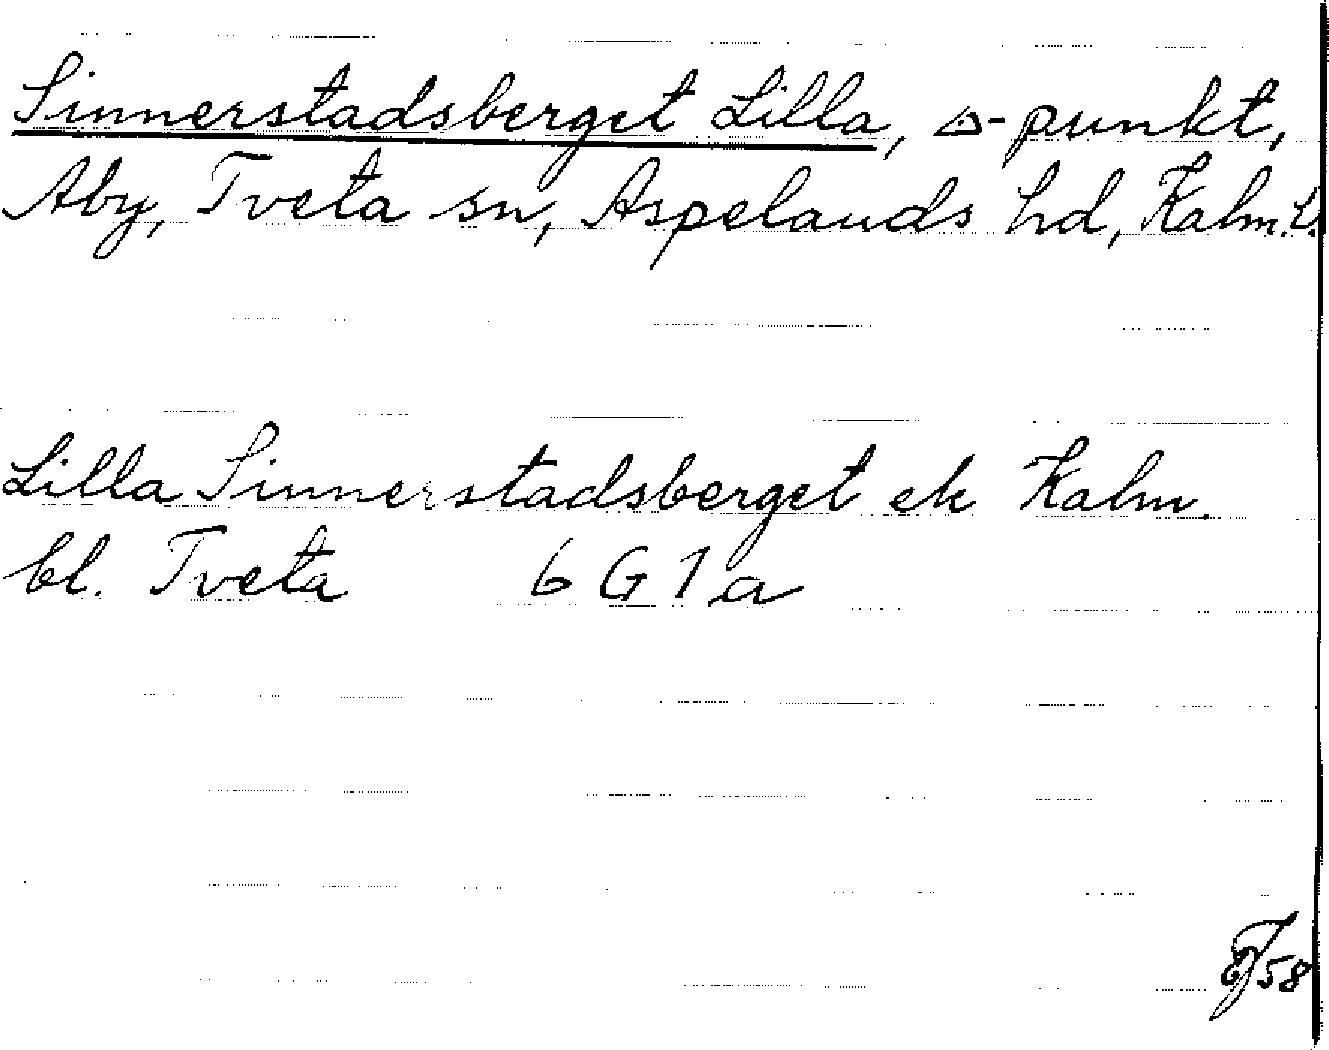 Sinnerstadsberget Lilla, △-punkt,
Aby, Tveta sn, Aspelands hd, Kalm. L.
Lilla Sinnerstadsberget ek Kalm.
bl. Tveta 6 G 1 a
58